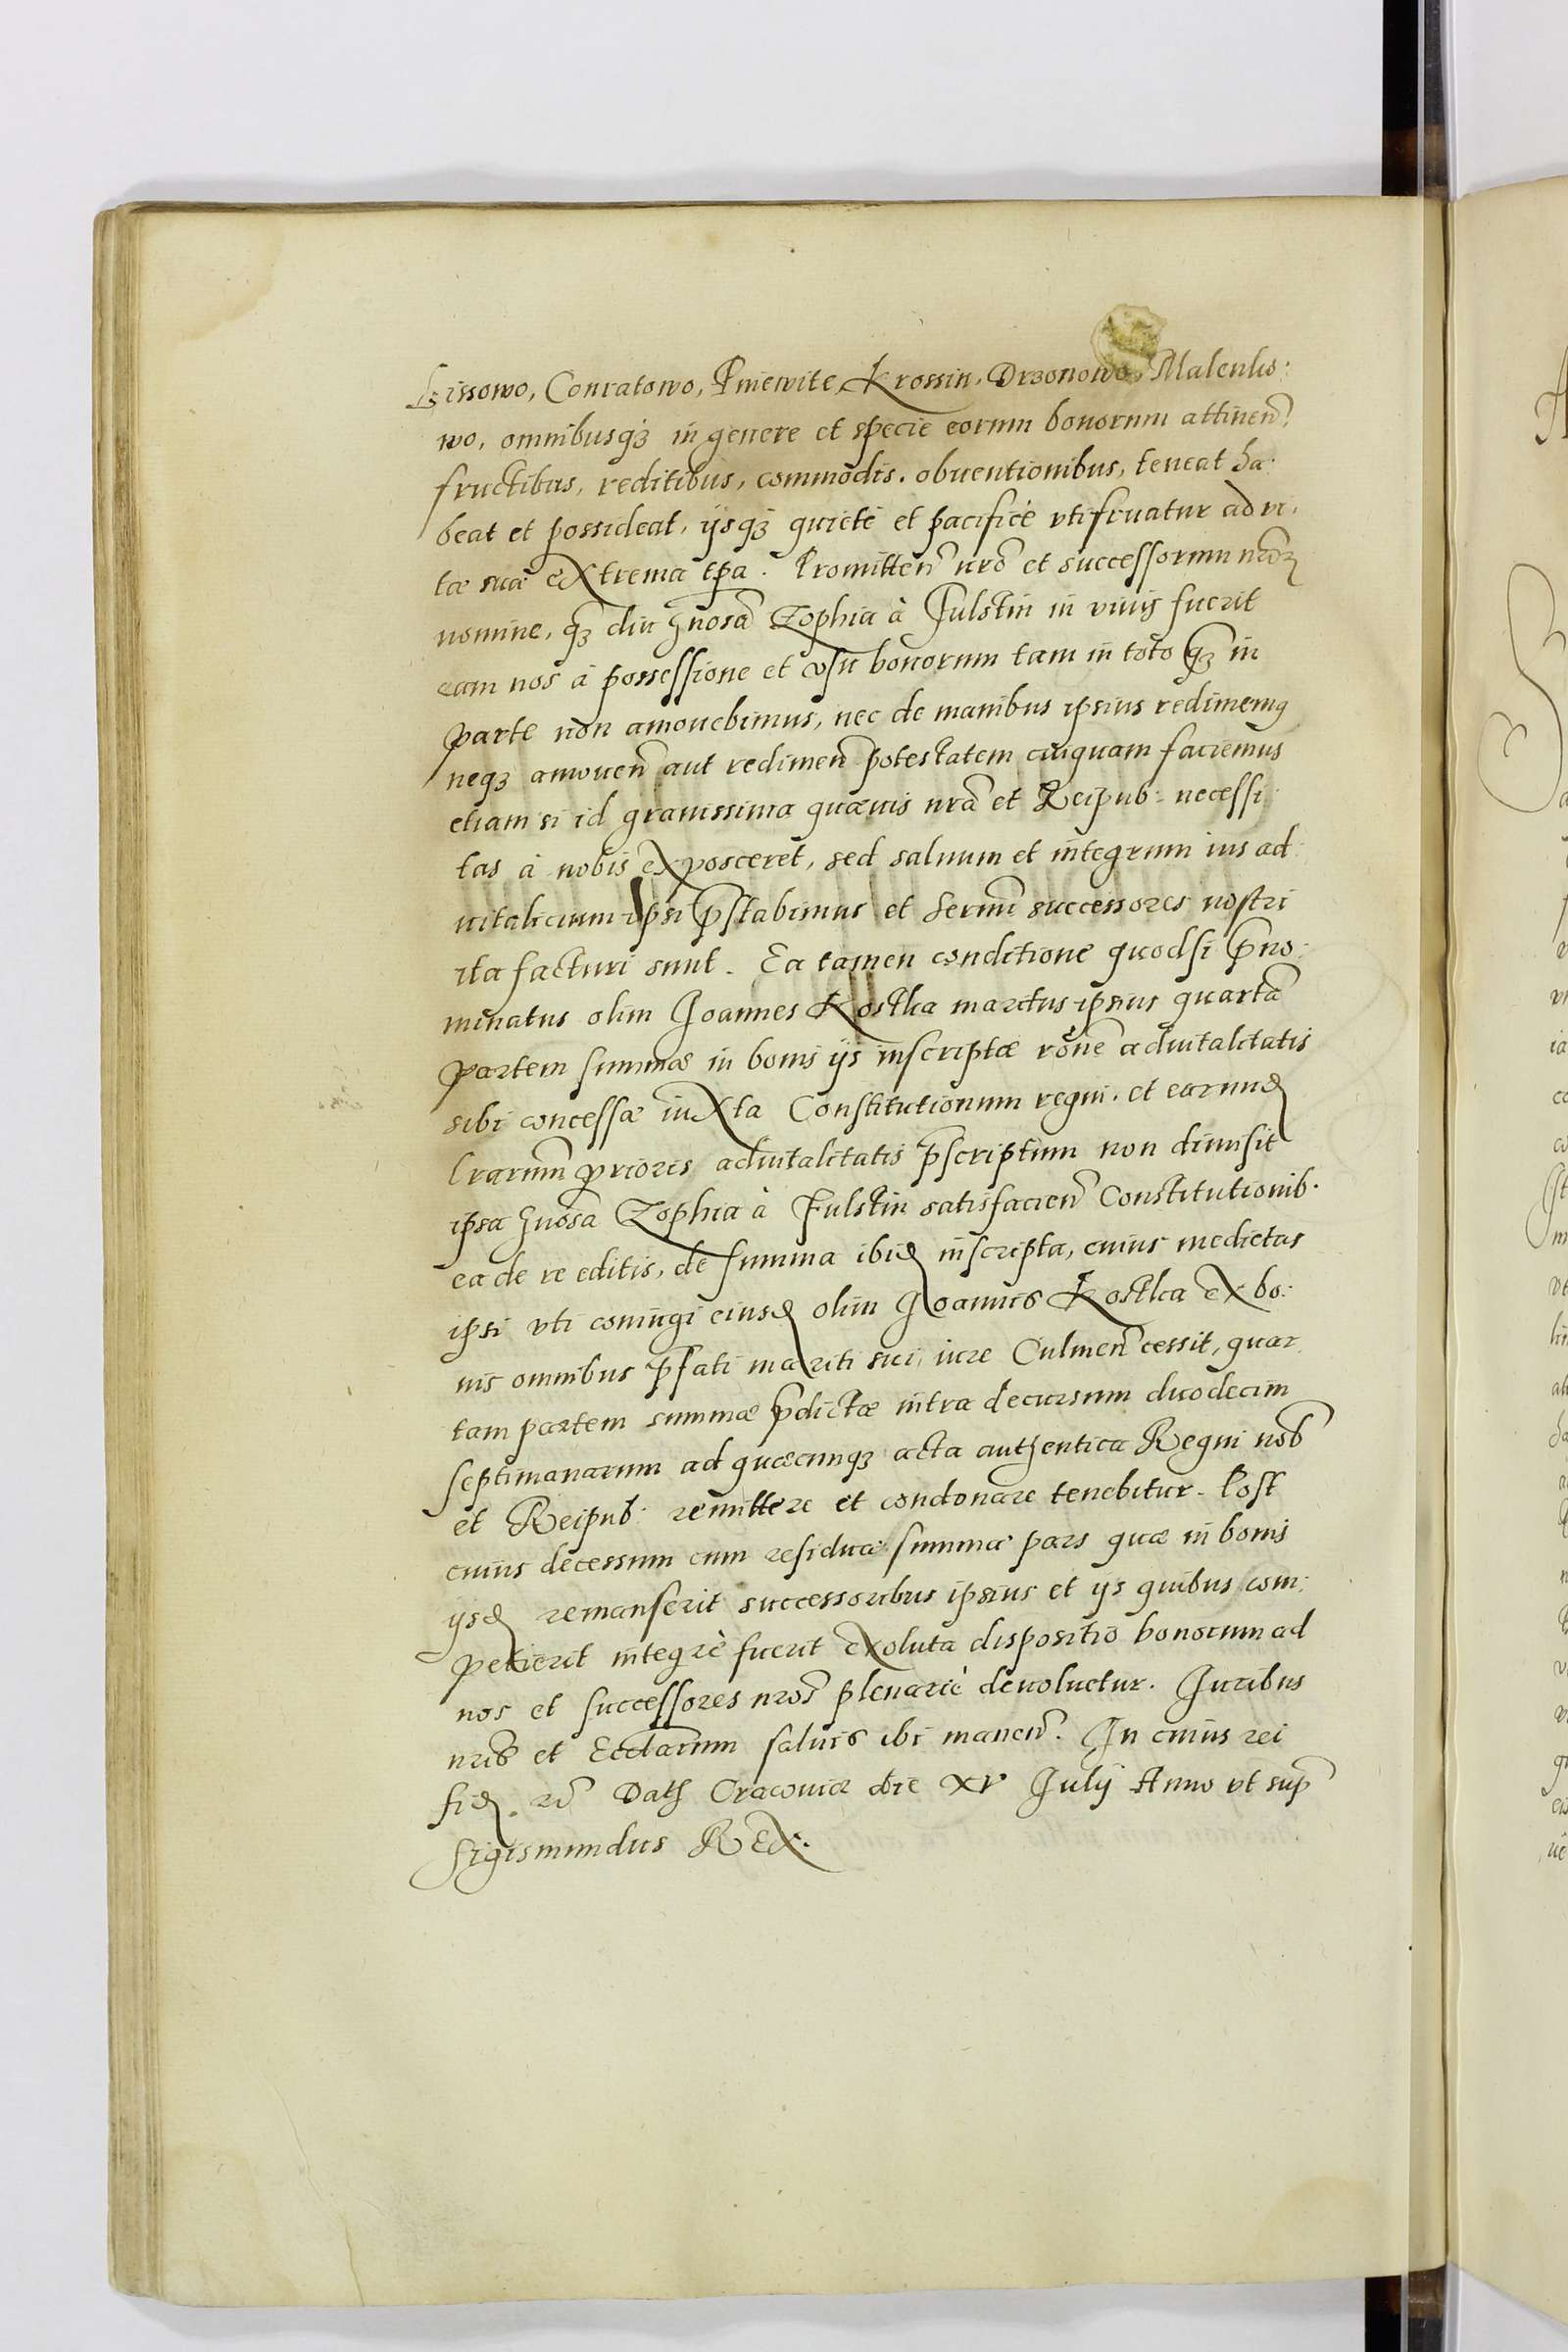 Lissowo, Conratowo, Pniewite, Krossin, Drzonowo, Malenlis:
wo, omnibusq3 in genere et specie eorum bonorum attinen:
fructibus, reditibus, commodis, obventionibus, teneat ha:
beat et possideat, ijsq3 quietè et pacificè vtifruatur ad vi,
tæ suæ extrema tpa. Promitten nrō et successorum nrōꝝ
nomine, q̃3 diu Gnosā Zophia à Fulstin in viuis fuerit
eam nos à possessione et vsu bonorum tam in toto q̃3 in
parte non amouebimus, nec de manibus ipsius redimemꝰ
neq3 amouen̄ aut redimen̄ potestatem cuiquam faciemus
etiam si id grauissima quæuis nrā et Reipub: necessi:
tas à nobis exposceret, sed saluum et integrum ius ad:
uitalicium ipsi p̄stabimus et Sermī successores nostri
ita facturi sunt. Ea tamen conditione quodsi p̄no:
minatus olim Joannes Kostka maritus ipsius quartā
partem summæ in bonis ijs inscriptæ rōne aduitalitatis
sibi concessæ iuxta Constitutionum regni, et earund
lrarum prioris aduitalitatis p̄scriptum non dimisit
ipsa Gnosa Zophia à Fulstin satisfacien̄ Constitutionib.
ea de re editis, de summa ibid inscripta, cuius medietas
ipsi vti coniugi eiusd olim Joannis Kostka ex bo:
nis omnibus p̄fati mariti sui, iure Culmen̄ cessit, quar
tam partem summæ p̄dictæ intra decursum duodecim
septimanarum ad quæcunq3 acta authentica Regni nob̄
et Reipub: remittere et condonare tenebitur. Post
cuius decessum cum residuæ summæ pars quæ in bonis
ijsd remanserit successoribus ipsius et ijs quibus com:
petierit integrè fuerit exoluta dispositio bonorum ad
nos et successores nros̄ plenariè deuoluetur. Juribus
nris̄ et Ecclārum saluis ibi manen̄. In cuius rei
fid. Dat Cracouiæ die xv Julij Anno vt sup̄
Sigismundus Rex.